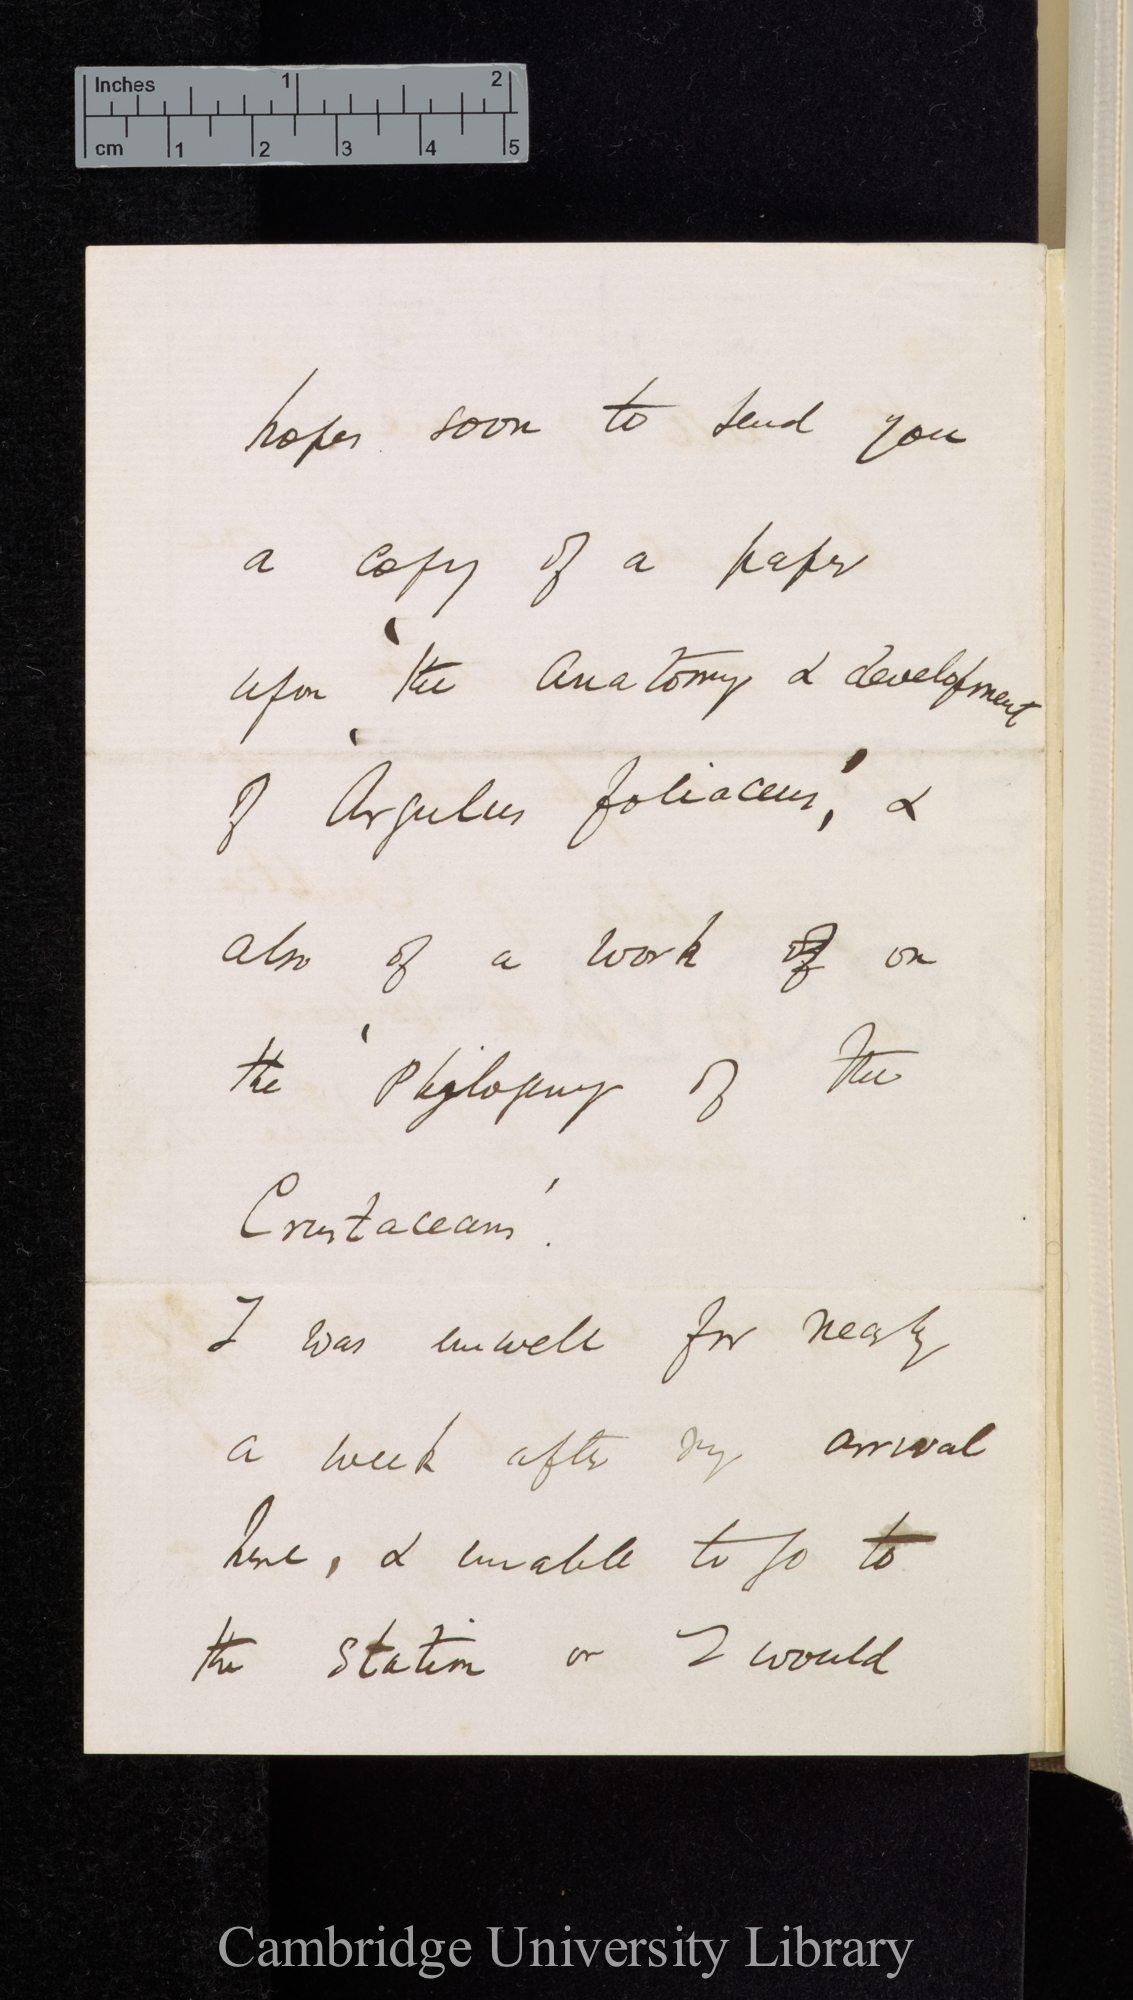 Inches 1 2
cm 1 2 3 4 5
hopes soon to send you
a copy of a paper
upon 'the Anatomy & development
of 'Argulus foliaceus', &
also of a work of on
the 'Phylogeny of the
Crustaceans'.
I was unwell for nearly
a week after my arrival
here, & unable to go to
the Station or I would
Cambridge University Library